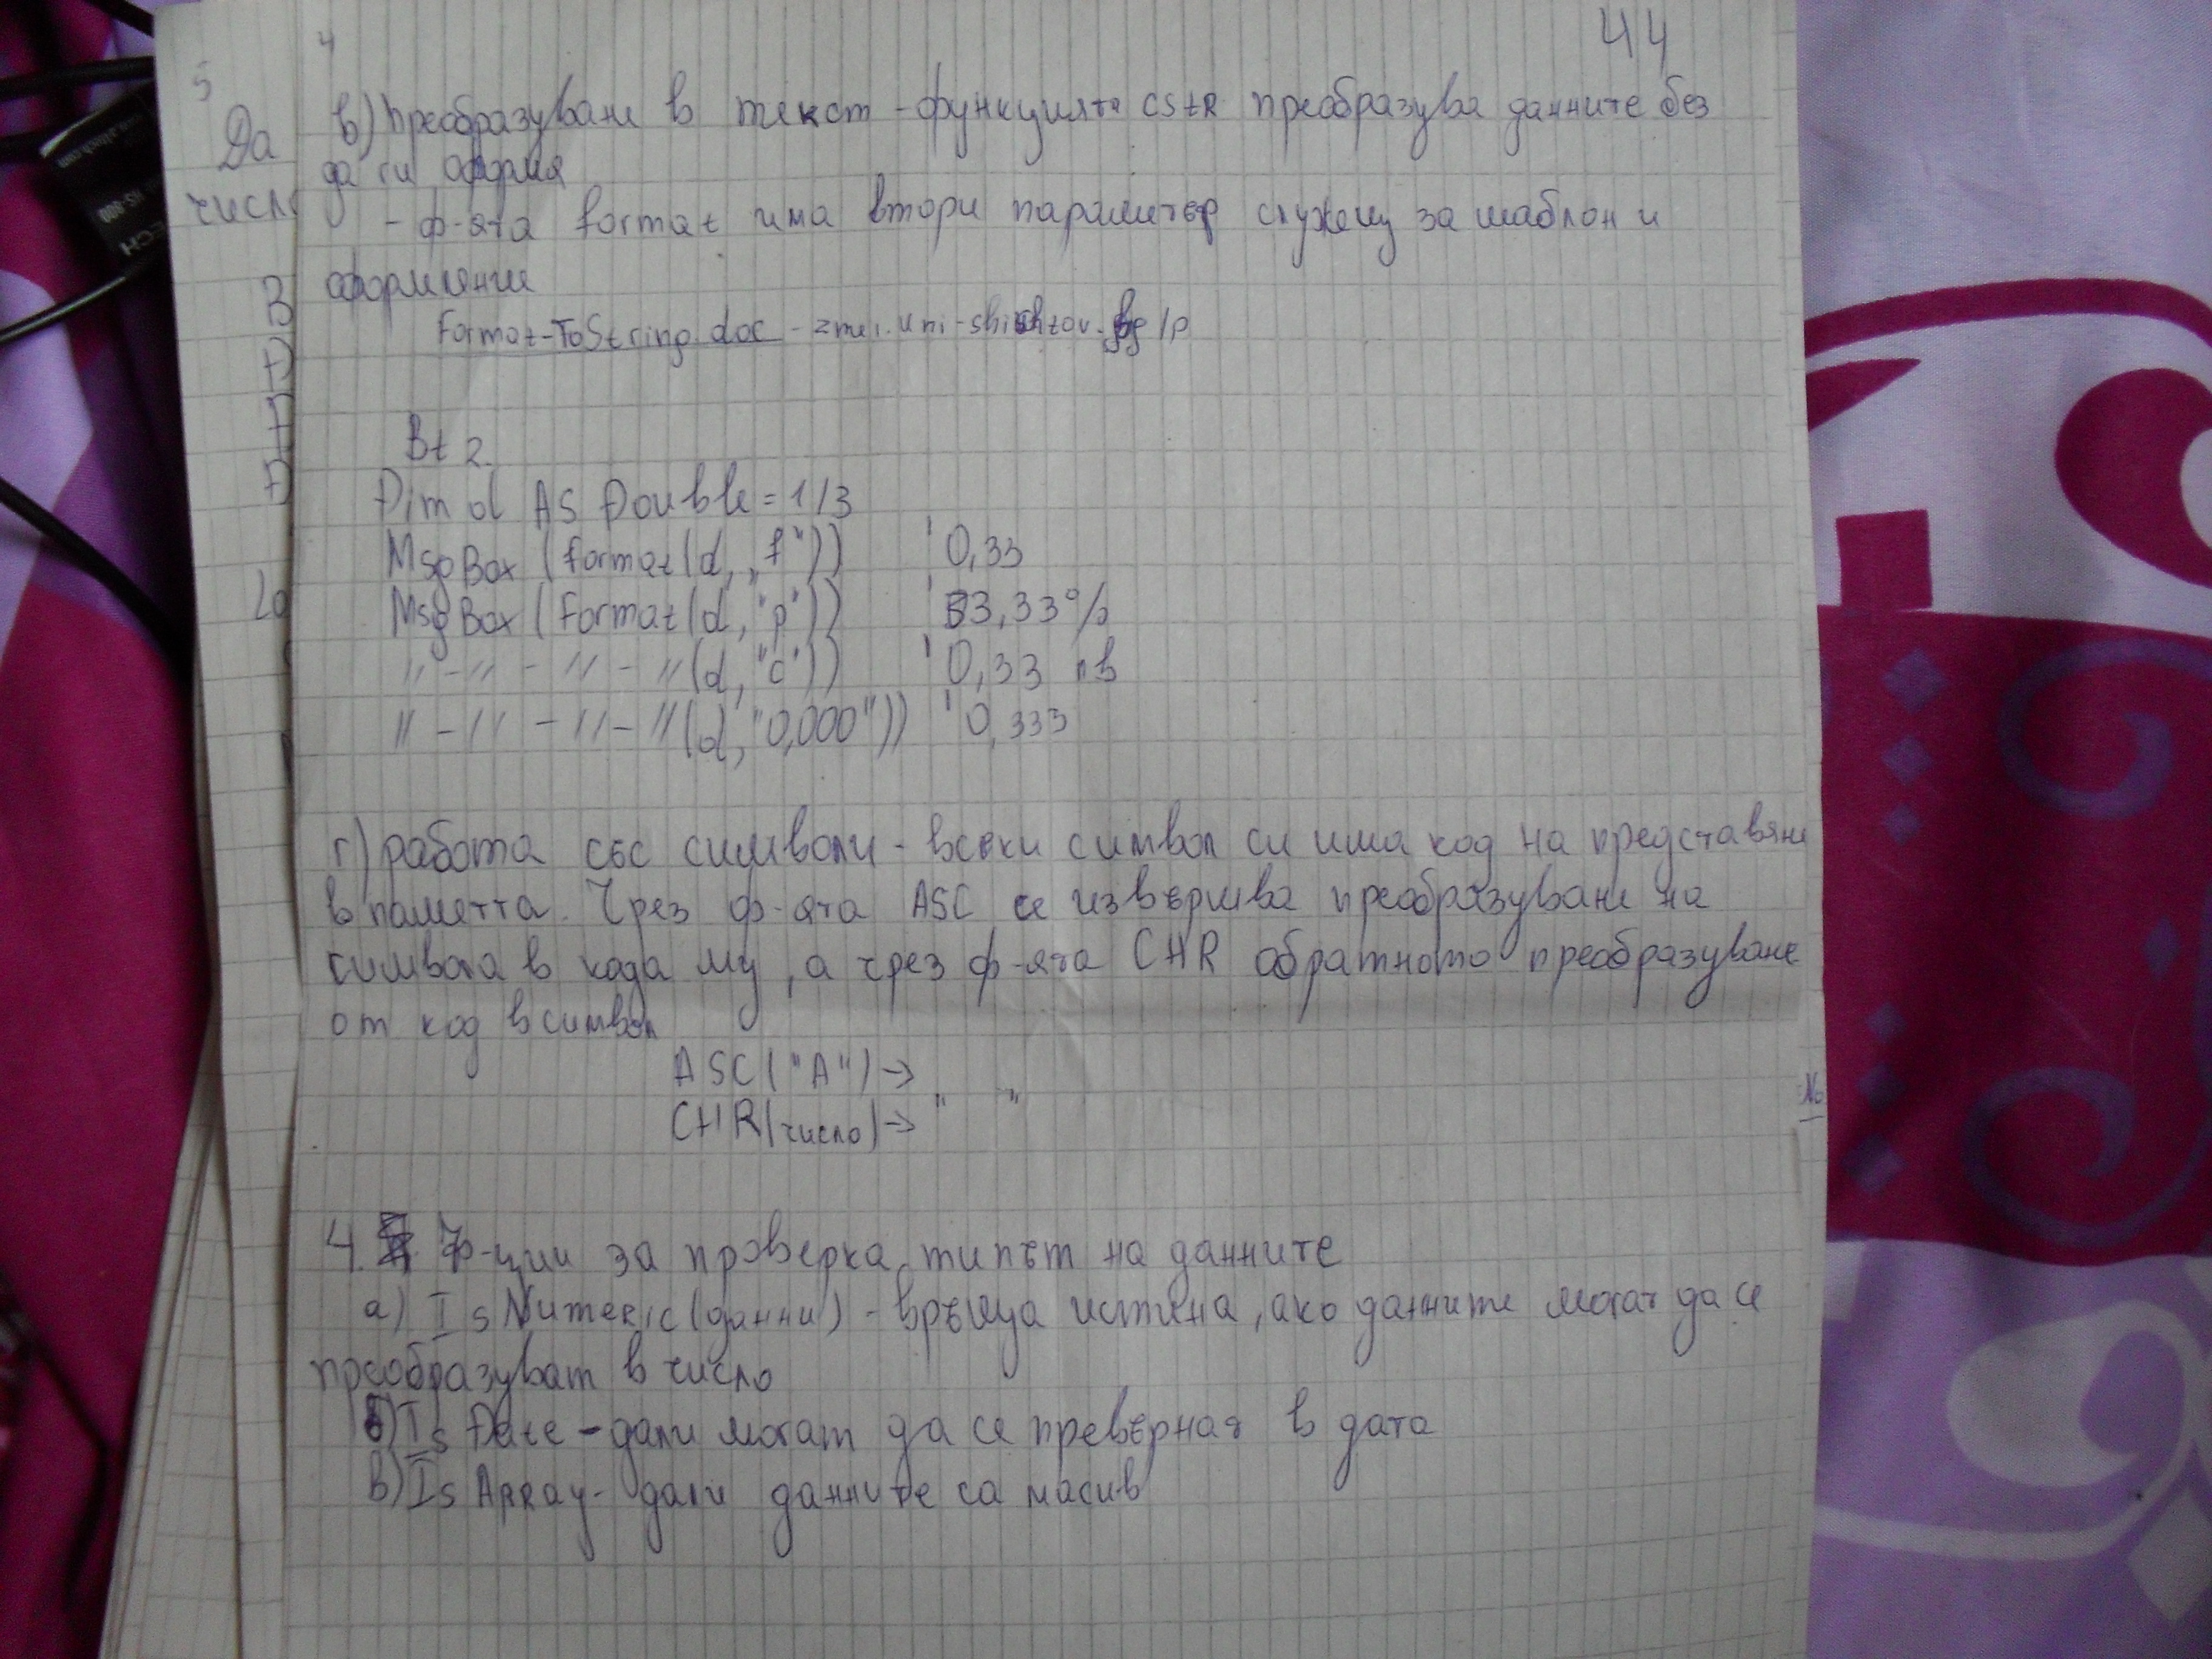 44
4
5
Да
число
в) преобразуване в текст - функцията CStR преобразува данните без
да ги оформя
- ф-ята format има втори параметър служещ за шаблон и
оформление
Format-ToString.doc - zmei.uni-svishtov.bg /p
Bt 2.
Dim d AS Double = 1/3
MsgBox (format(d, „f")) ' 0,33
MsgBox (Format(d, "p")) ' 33,33%
" - " - " - " (d, "c")) ' 0,33 лв
" - " - " - " (d, "0,000")) ' 0,333
г) работа със символи - всеки символ си има код на представяне
в паметта. Чрез ф-ята ASC се извършва преобразуване на
символа в кода му, а чрез ф-ята CHR обратното преобразуване
от код в символ
ASC("A") →
CHR(число) → " "
4. Ф-ции за проверка типът на данните
а) IsNumeric(данни) - връща истина, ако данните могат да се
преобразуват в число
б) IsDate - дали могат да се превърнат в дата
в) IsArray - дали данните са масив